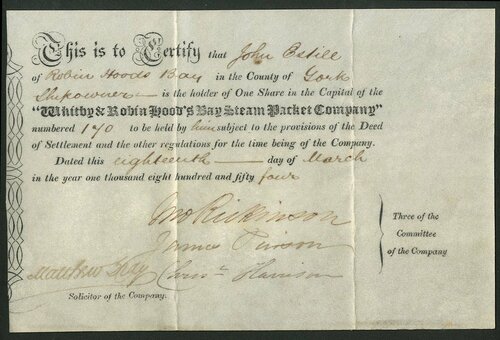 This is to Certify that John Estill
of Robin Hoods Bay in the County of York
Shipowner is the holder of One Share in the Capital of the
"Whitby & Robin Hood's Bay Steam Packet Company"
numbered 170 to be held by him subject to the provisions of the Deed
of Settlement and the other regulations for the time being of the Company.
Dated this eighteenth day of March
in the year one thousand eight hundred and fifty four
Rickinson
James Pierson
Harrison
Three of the
Committee
of the Company
Matthew Gray
Solicitor of the Company.